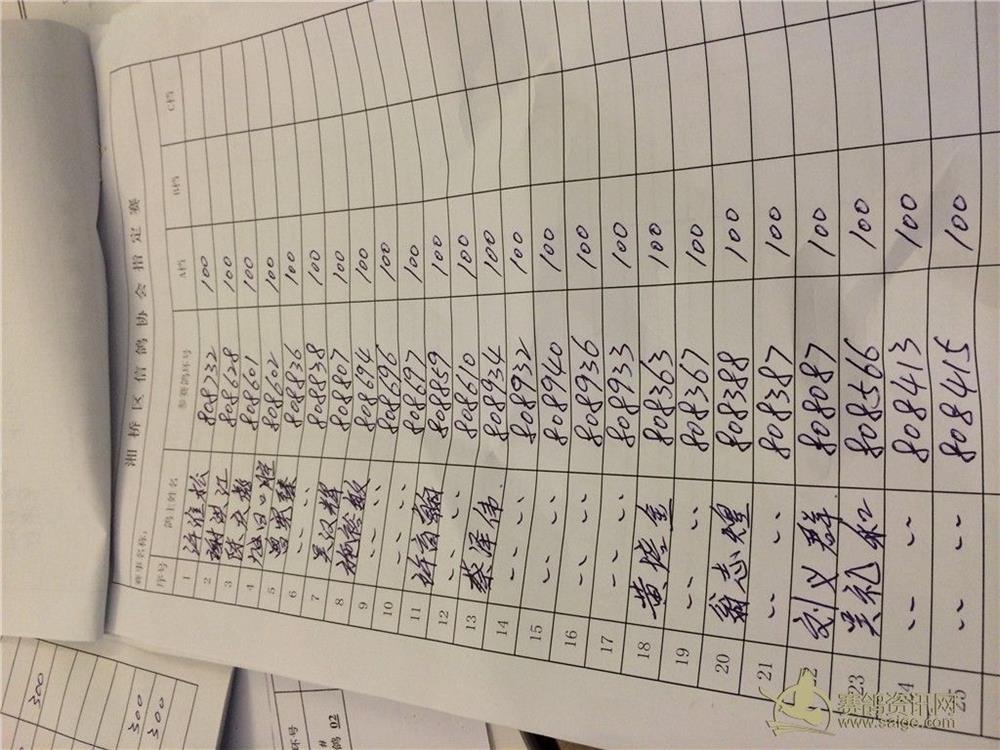 赛事名称: 湘桥区信鸽协会指定赛
序号 鸽主姓名 参赛鸽环号 A档 B档 C档
1 许淮松 808732 100
2 谢洪江 808628 100
3 808601 100
4 旭日口腔 808602 100
5 808836 100
6 -- 808838 100
7 吴汉辉 808807 100
8 808694 100
9 -- 808696 100
10 -- 808697 100
11 808859 100
12 -- 808610 100
13 蔡泽伟 808934 100
14 -- 808932 100
15 -- 808940 100
16 -- 808936 100
17 -- 808933 100
18 808363 100
19 -- 808367 100
20 翁志煌 808388 100
21 -- 808387 100
22 刘义群 808087 100
23 吴礼和 808566 100
24 -- 808413 100
25 -- 808415 100
300
300
300
环号
鸽 02
赛鸽资讯网
www.saige.com